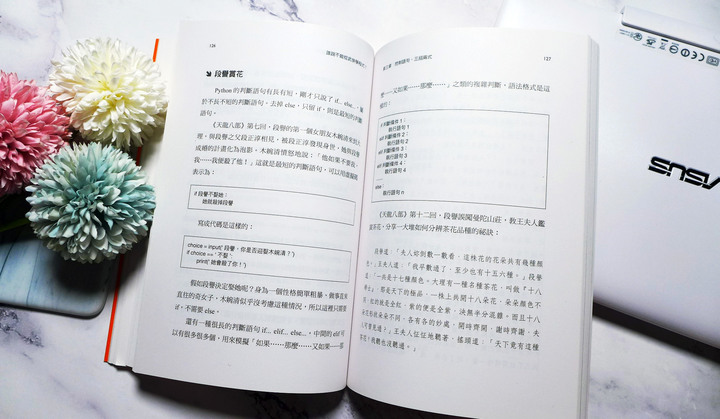 126
➘ 段譽賞花
Python的判斷語句有長有短,剛才只說了if... else...,屬
於不長不短的判斷語句。去掉else,只留if,則是最短的判斷
語句。
《天龍八部》第七回,段譽的第一個女朋友木婉清在大
理,與段譽之父段正淳相見,被段正淳發現身世,她與段譽
成婚的計畫化為泡影。木婉清憤怒地說:「他如果不要我,
我……我便殺了他!」這就是最短的判斷語句,可以用虛擬碼
表示為:
if 段譽不娶她:
她就殺掉段譽
寫成代碼是這樣的:
choice = input(' 段譽,你是否迎娶木婉清? ')
if choice == ' 不娶 ':
print(' 她會殺了你! ')
假如段譽決定娶她呢?身為一個性格簡單粗暴、做事直來
直往的奇女子,木婉清似乎沒考慮這種情況,所以這裡只需要
if,不需要else。
還有一種很長的判斷語句if... elif... else...,中間的elif可
以有很多很多個,用來模擬「如果……那麼……又如果……那
127
第三章 控制語句,三招兩式
麼……又如果……那麼……」之類的複雜判斷,語法格式是這
樣的:
if 判斷條件 1:
執行語句 1
elif 判斷條件 2:
執行語句 2
elif 判斷條件 3:
執行語句 3
elif 判斷條件 4:
執行語句 4
......
else:
執行語句 n
《天龍八部》第十二回,段譽誤闖曼陀山莊,教王夫人鑑
賞茶花,分享一大堆如何分辨茶花品種的祕訣:
段譽道:「夫人妳倒數一數看,這株花的花朵共有幾種顏
色。」王夫人道:「我早數過了,至少也有十五六種。」段譽
道:「一共是十七種顏色。大理有一種名種茶花,叫做『十八
學士』,那是天下的極品,一株上共開十八朵花,朵朵顏色不
同,紅的就是全紅,紫的便是全紫,決無半分混雜。而且十八
朵花形狀朵朵不同,各有各的妙處,開時齊開,謝時齊謝,夫
人可曾見過?」王夫人怔怔地聽著,搖頭道:「天下竟有這種
茶花!我聽也沒聽過。」
ASUS